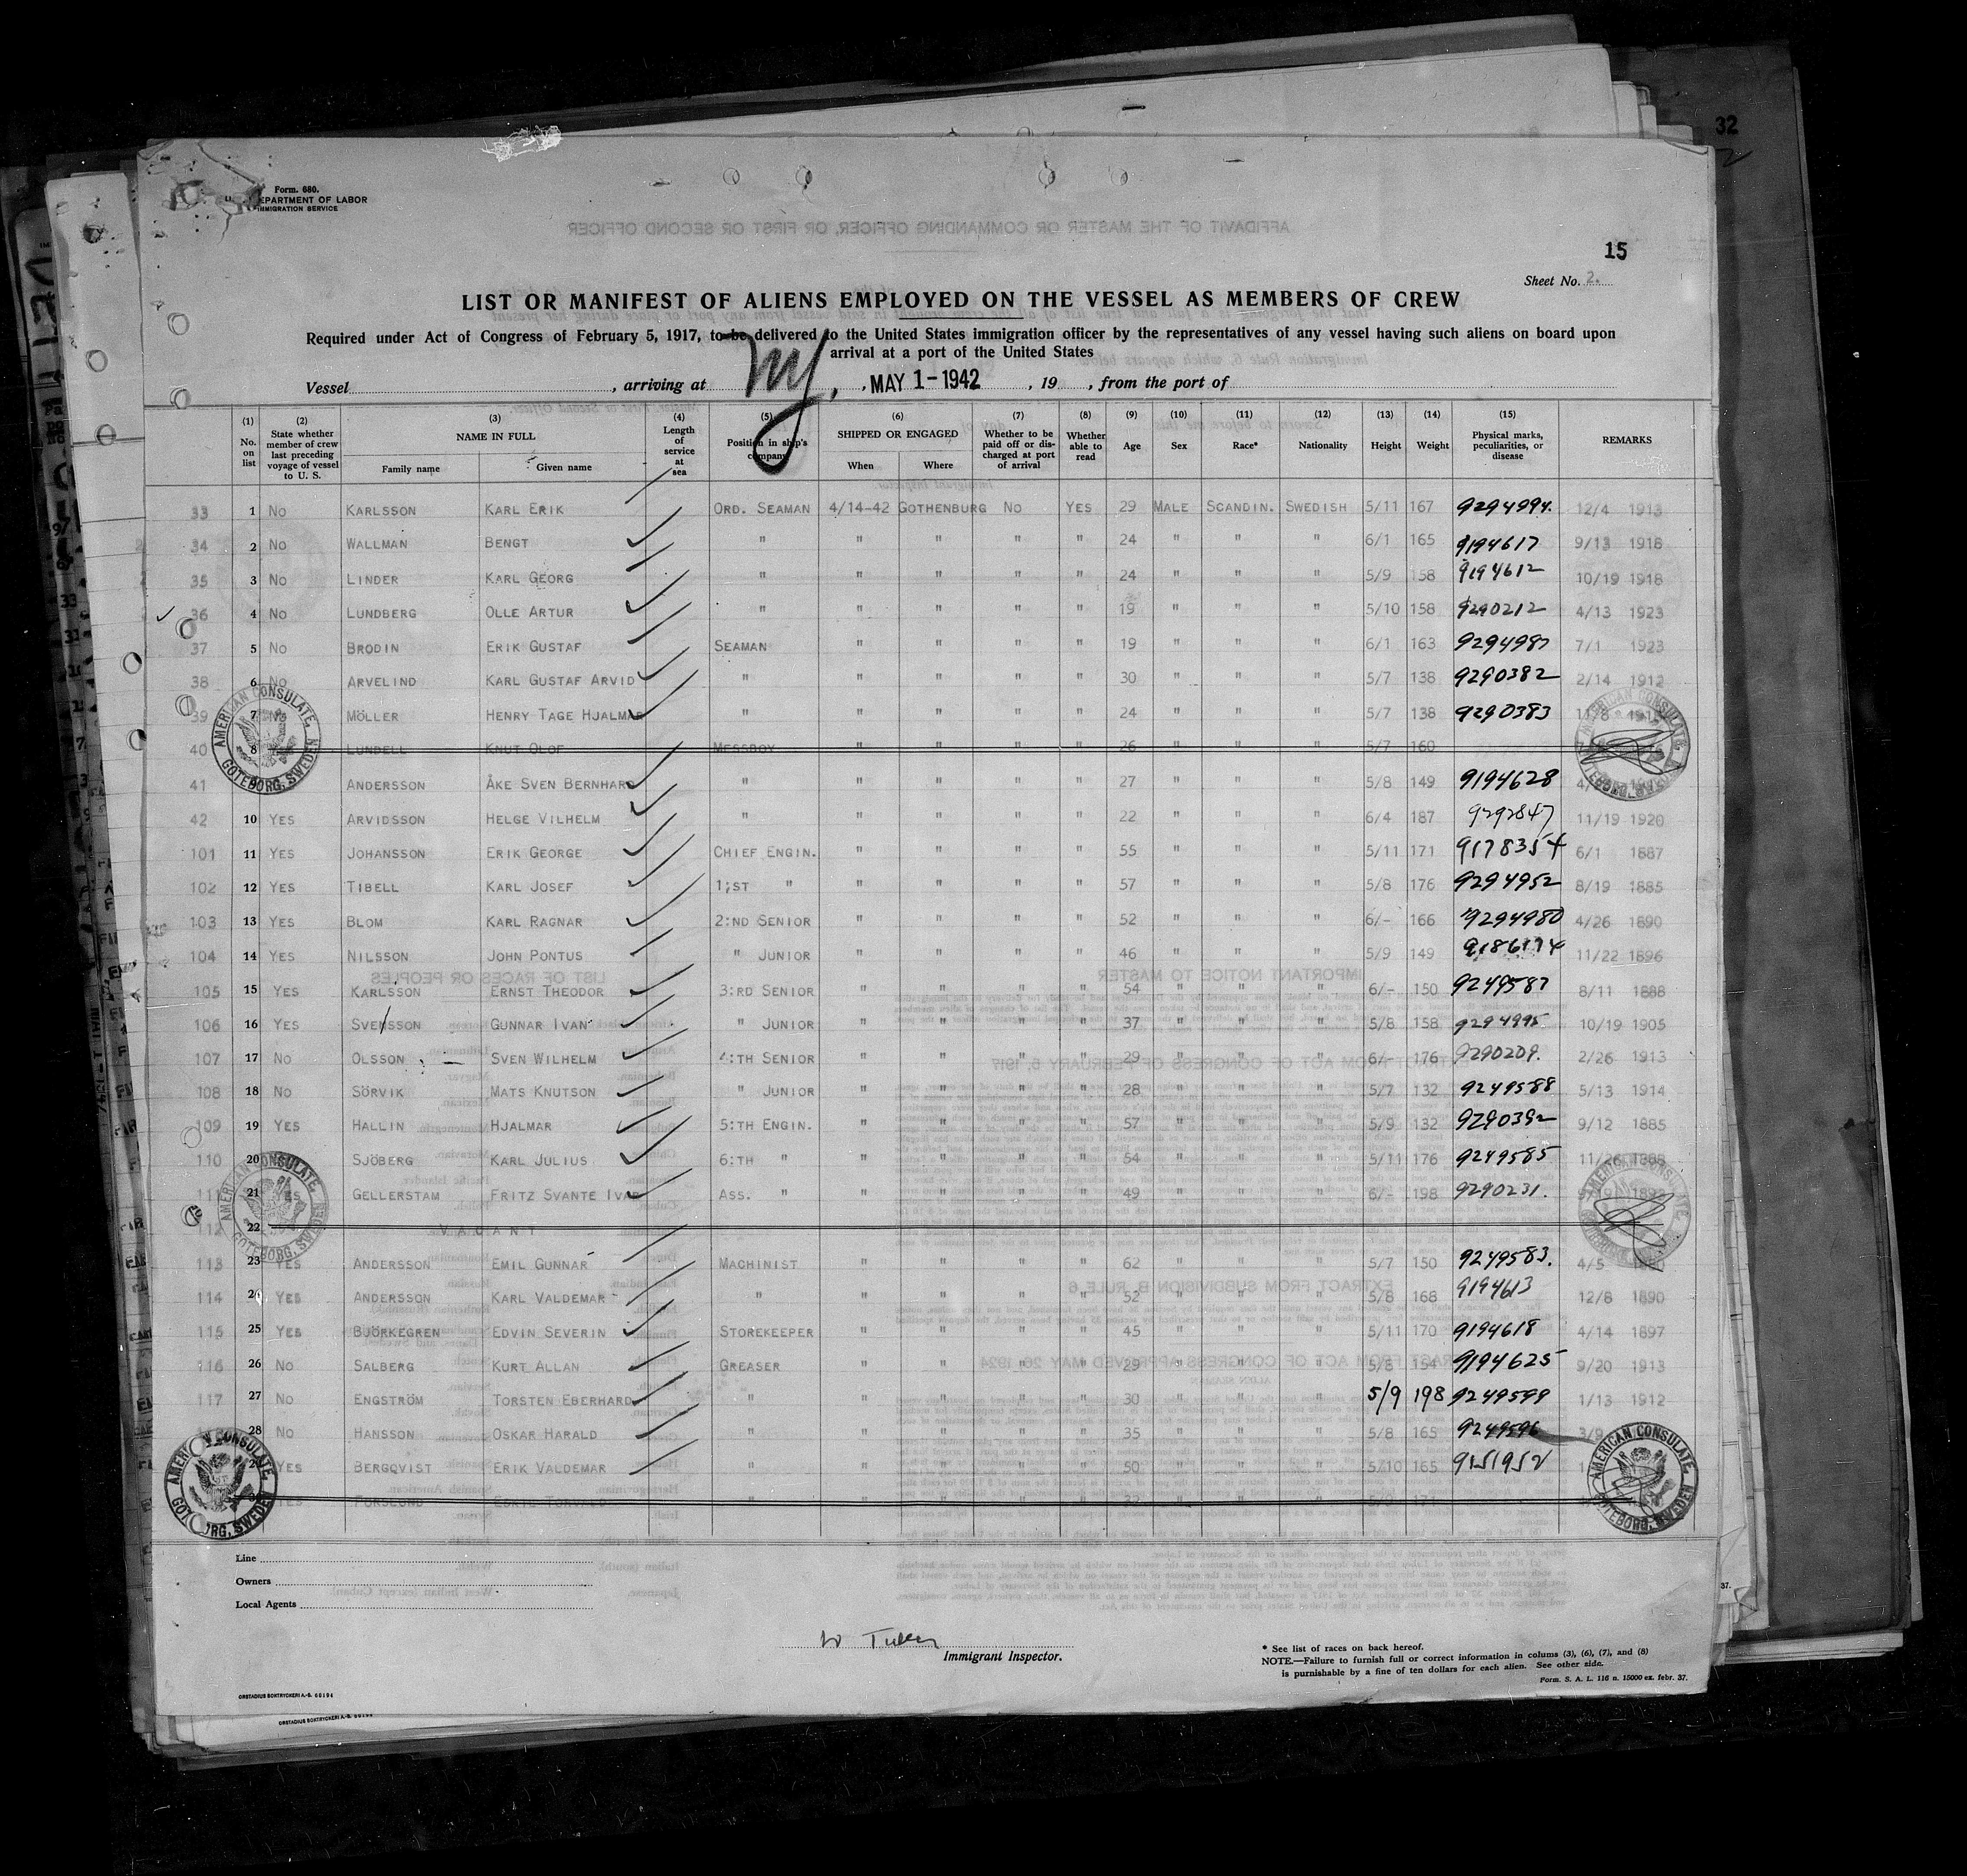 32
Form. 680.
DEPARTMENT OF LABOR
IMMIGRATION SERVICE
15
Sheet No. 2.
LIST OR MANIFEST OF ALIENS EMPLOYED ON THE VESSEL AS MEMBERS OF CREW
Required under Act of Congress of February 5, 1917, to be delivered to the United States immigration officer by the representatives of any vessel having such aliens on board upon
arrival at a port of the United States
Vessel , arriving at NY, , MAY 1-1942 , 19 , from the port of
(1) No. on list (2) State whether member of crew last preceding voyage of vessel to U. S. (3) NAME IN FULL Family name Given name (4) Length of service at sea (5) Position in ship's company (6) SHIPPED OR ENGAGED When Where (7) Whether to be paid off or discharged at port of arrival (8) Whether able to read (9) Age (10) Sex (11) Race* (12) Nationality (13) Height (14) Weight (15) Physical marks, peculiarities, or disease REMARKS
33 1 NO KARLSSON KARL ERIK ORD. SEAMAN 4/14-42 GOTHENBURG NO YES 29 MALE SCANDIN. SWEDISH 5/11 167 9294994. 12/4 1913
34 2 NO WALLMAN BENGT " " " " " 24 " " " 6/1 165 9194617 9/13 1918
35 3 NO LINDER KARL GEORG " " " " " 24 " " " 5/9 158 9194612 10/19 1918
36 4 NO LUNDBERG OLLE ARTUR " " " " " 19 " " " 5/10 158 9290212 4/13 1923
37 5 NO BRODIN ERIK GUSTAF SEAMAN " " " " 19 " " " 6/1 163 9294987 7/1 1923
38 6 NO ARVELIND KARL GUSTAF ARVID " " " " " 30 " " " 5/7 138 9290382 2/14 1912
39 7 NO MÖLLER HENRY TAGE HJALMAR " " " " " 24 " " " 5/7 138 9290383
40 8 LUNDELL KNUT OLOF MESSBOY " " " " 26 " " " 5/7 160
41 ANDERSSON ÅKE SVEN BERNHARD " " " " " 27 " " " 5/8 149 9194628
42 10 YES ARVIDSSON HELGE VILHELM " " " " " 22 " " " 6/4 187 9292847 11/19 1920
101 11 YES JOHANSSON ERIK GEORGE CHIEF ENGIN. " " " " 55 " " " 5/11 171 9178354 6/1 1887
102 12 YES TIBELL KARL JOSEF 1;ST " " " " " 57 " " " 5/8 176 9294952 8/19 1885
103 13 YES BLOM KARL RAGNAR 2:ND SENIOR " " " " 52 " " " 6/- 166 9294980 4/26 1890
104 14 YES NILSSON JOHN PONTUS " JUNIOR " " " " 46 " " " 5/9 149 9186174 11/22 1896
105 15 YES KARLSSON ERNST THEODOR 3:RD SENIOR " " " " 54 " " " 6/- 150 9249587 8/11 1888
106 16 YES SVENSSON GUNNAR IVAN " JUNIOR " " " " 37 " " " 5/8 158 9294995 10/19 1905
107 17 NO OLSSON SVEN WILHELM 4:TH SENIOR " " " " 29 " " " 6/- 176 9290209. 2/26 1913
108 18 NO SÖRVIK MATS KNUTSON " JUNIOR " " " " 28 " " " 5/7 132 9249588 5/13 1914
109 19 YES HALLIN HJALMAR 5:TH ENGIN. " " " " 57 " " " 5/9 132 9290392 9/12 1885
110 20 SJÖBERG KARL JULIUS 6:TH " " " " " 54 " " " 5/11 176 9249585 11/26 1888
111 21 YES GELLERSTAM FRITZ SVANTE IVAR ASS. " " " " " 49 " " " 6/- 198 9290231.
112 22 VACANT
113 23 YES ANDERSSON EMIL GUNNAR MACHINIST " " " " 62 " " " 5/7 150 9249583. 4/5 1880
114 24 YES ANDERSSON KARL VALDEMAR " " " " " 52 " " " 5/8 168 9194613 12/8 1890
115 25 YES BJÖRKEGREN EDVIN SEVERIN STOREKEEPER " " " " 45 " " " 5/11 170 9194618 4/14 1897
116 26 NO SALBERG KURT ALLAN GREASER " " " " 29 " " " 5/8 154 9194625 9/20 1913
117 27 NO ENGSTRÖM TORSTEN EBERHARD " " " " " 30 " " " 5/9 198 9249599 1/13 1912
28 NO HANSSON OSKAR HARALD " " " " " 35 " " " 5/8 165 9249596 3/9
YES BERGQVIST ERIK VALDEMAR " " " " " 50 " " " 5/10 165 9151952
YES FORSLUND " " " " " 32 " " " 5/9 171
AMERICAN CONSULATE, GOTEBORG, SWEDEN
AMERICAN CONSULATE, GOTEBORG, SWEDEN
AMERICAN CONSULATE, GOTEBORG, SWEDEN
AMERICAN CONSULATE, GOTEBORG, SWEDEN
AMERICAN CONSULATE, GOTEBORG, SWEDEN
AMERICAN CONSULATE, GOTEBORG, SWEDEN
Line
Owners
Local Agents
Immigrant Inspector.
* See list of races on back hereof.
NOTE.—Failure to furnish full or correct information in colums (3), (6), (7), and (8)
is punishable by a fine of ten dollars for each alien. See other side.
Form. S. A. L. 116 n. 15000 ex. febr. 37.
ORSTADIUS BOKTRYCKERI A.-B. 60194
ORSTADIUS BOKTRYCKERI A.-B. 60194
37.